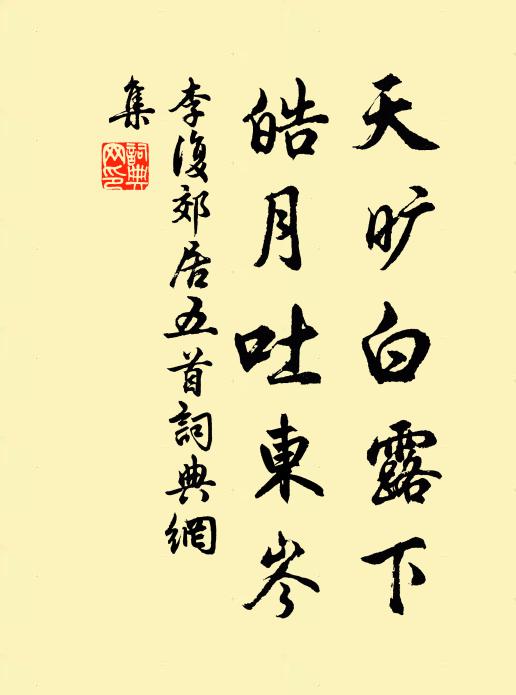 天旷白露下
皓月吐東岑
李復郊居五首詞典網
集
詞典
网印